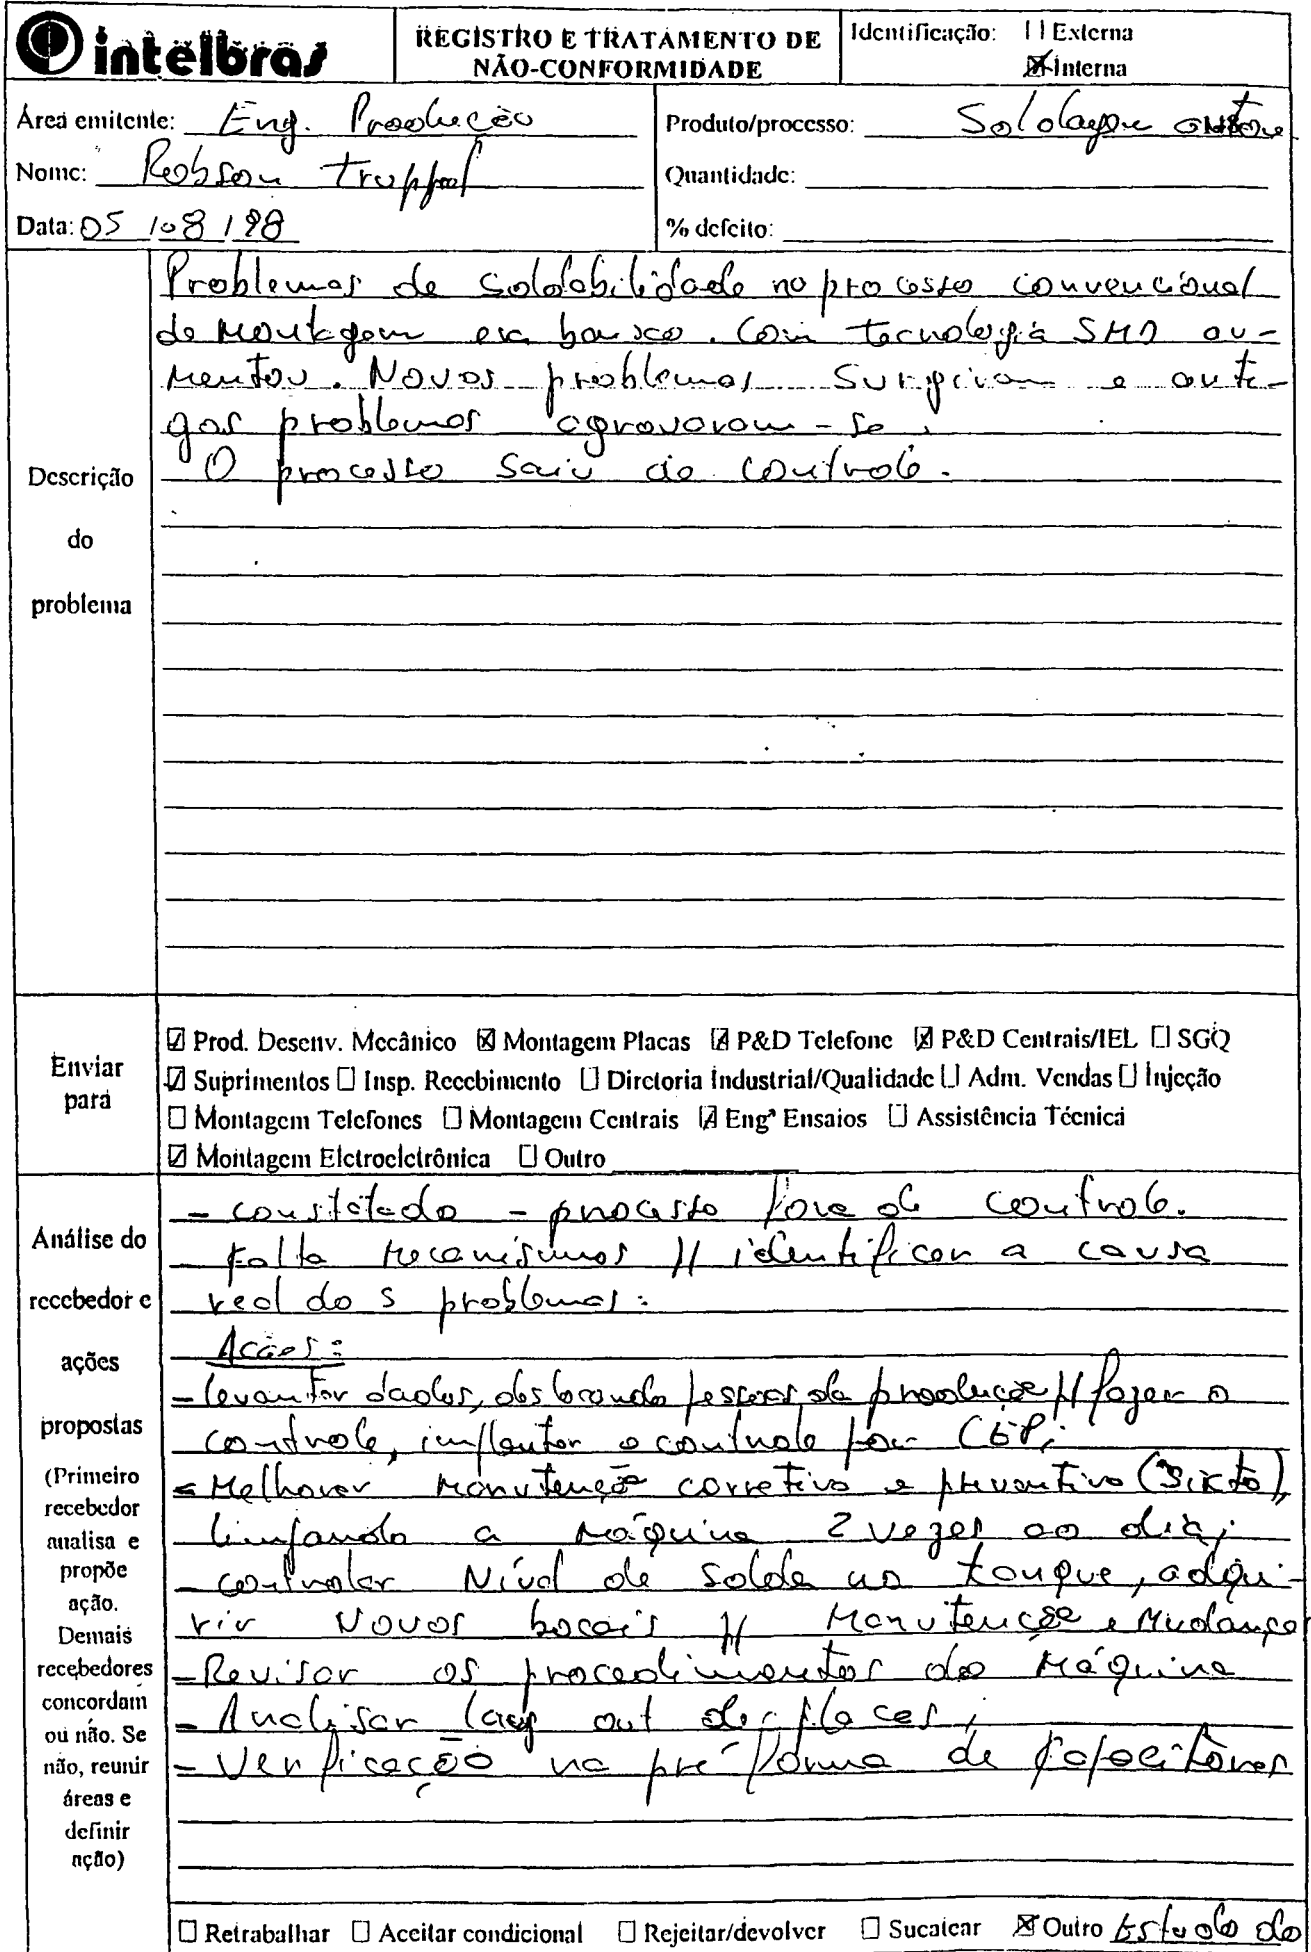 intelbras
REGISTRO E TRATAMENTO DE
NÃO-CONFORMIDADE
Identificação: [ ] Externa
[X] Interna
Área emitente: Eng. Produção
Nome: Robson
Data: 05/08/98
Produto/processo: Soldagem
Quantidade:
% defeito:
Descrição
do
problema
Problemas de soldabilidade no processo convencional
de montagem era baixo. Com tecnologia SMD au-
mentou. Novos problemas surgiram e anti-
gos problemas agravaram-se.
O processo saiu de controle.
Enviar
para
☑ Prod. Desenv. Mecânico ☒ Montagem Placas ☑ P&D Telefone ☒ P&D Centrais/IEL ☐ SGQ
☑ Suprimentos ☐ Insp. Recebimento ☐ Diretoria Industrial/Qualidade ☐ Adm. Vendas ☐ Injeção
☐ Montagem Telefones ☐ Montagem Centrais ☑ Engª Ensaios ☐ Assistência Técnica
☑ Montagem Eletroeletrônica ☐ Outro
Análise do
recebedor e
ações
propostas
(Primeiro
recebedor
analisa e
propõe
ação.
Demais
recebedores
concordam
ou não. Se
não, reunir
áreas e
definir
ação)
- constatado - processo fora de controle.
Falta mecanismos p/ identificar a causa
real dos problemas:
Ações:
- levantar dados, deslocando pessoas da produção p/ fazer o
controle, implantar o controle por CEP;
- Melhorar manutenção corretiva e preventiva (Sixto),
limpando a máquina 2 vezes ao dia;
- controlar Nível de solda no tanque, adqui-
rir novos bocais p/ manutenção e mudança
- Revisar os procedimentos da máquina
- Analisar lay out das placas;
- Verificação na pré forma de capacitores
☐ Retrabalhar ☐ Aceitar condicional ☐ Rejeitar/devolver ☐ Sucatear ☒ Outro Estudo do